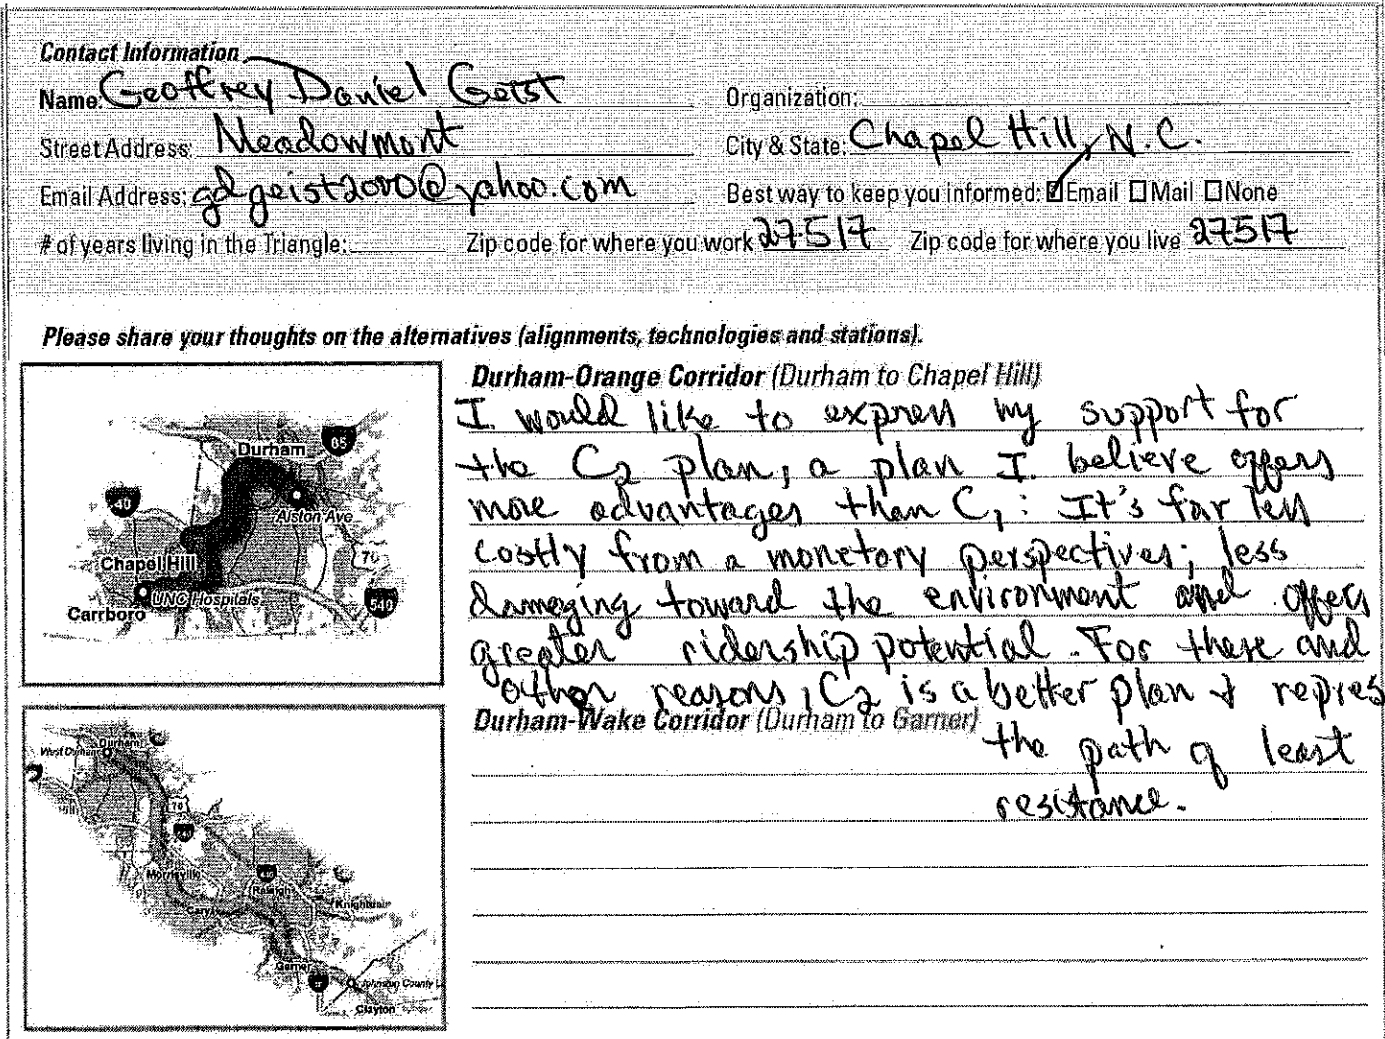 Contact Information
Name: Geoffrey Daniel Geist
Organization:
Street Address: Meadowmont
City & State: Chapel Hill, N.C.
Email Address: gdgeist2000@yahoo.com
Best way to keep you informed: ☑Email ☐Mail ☐None
# of years living in the Triangle:
Zip code for where you work 27517
Zip code for where you live 27517
Please share your thoughts on the alternatives (alignments, technologies and stations).
Durham-Orange Corridor (Durham to Chapel Hill)
I would like to express my support for
the C2 plan, a plan I believe offers
more advantages than C1: It's far less
costly from a monetary perspectives; less
damaging toward the environment and offers
greater ridership potential. For these and
other reasons, C2 is a better plan & repres
the path of least
resistance.
Durham-Wake Corridor (Durham to Garner)
85
Durham
40
Alston Ave
70
Chapel Hill
UNC Hospitals
540
Carrboro
Durham
West Durham
70
Morrisville
Raleigh
Knightdale
Cary
Garner
Johnston County
Clayton